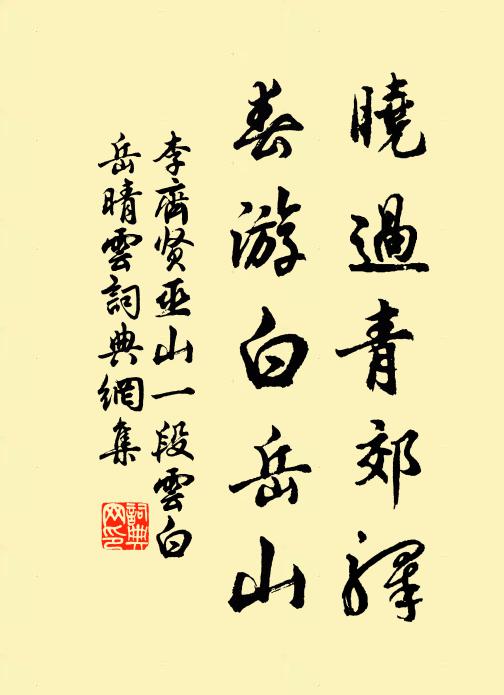 曉過青郊驛
春游白岳山
李齊贤巫山一段雲白
岳晴雲詞典網集
詞典网印